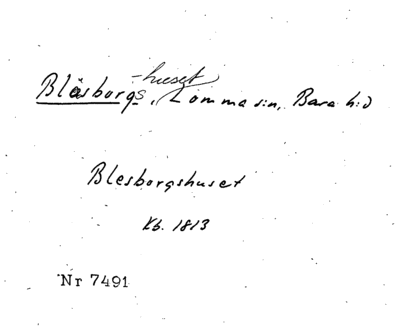 Bläsborgs-huset, Lomma sn, Bara hd
Blesborgshuset
Kb. 1813
Nr 7491